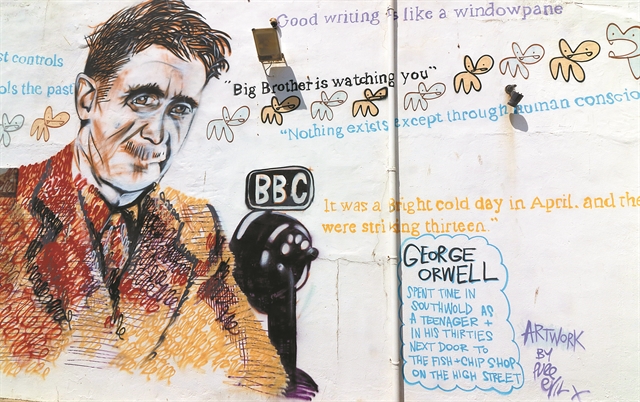 Good writing is like a windowpane
st controls
ols the past
"Big Brother is watching you"
"Nothing exists except through human conscio
BBC
It was a bright cold day in April. and the
were striking thirteen."
GEORGE
ORWELL
SPENT TIME IN
SOUTHWOLD AS
A TEENAGER +
IN HIS THIRTIES
NEXT DOOR TO
THE FISH+CHIP SHOP
ON THE HIGH STREET
ARTWORK
BY